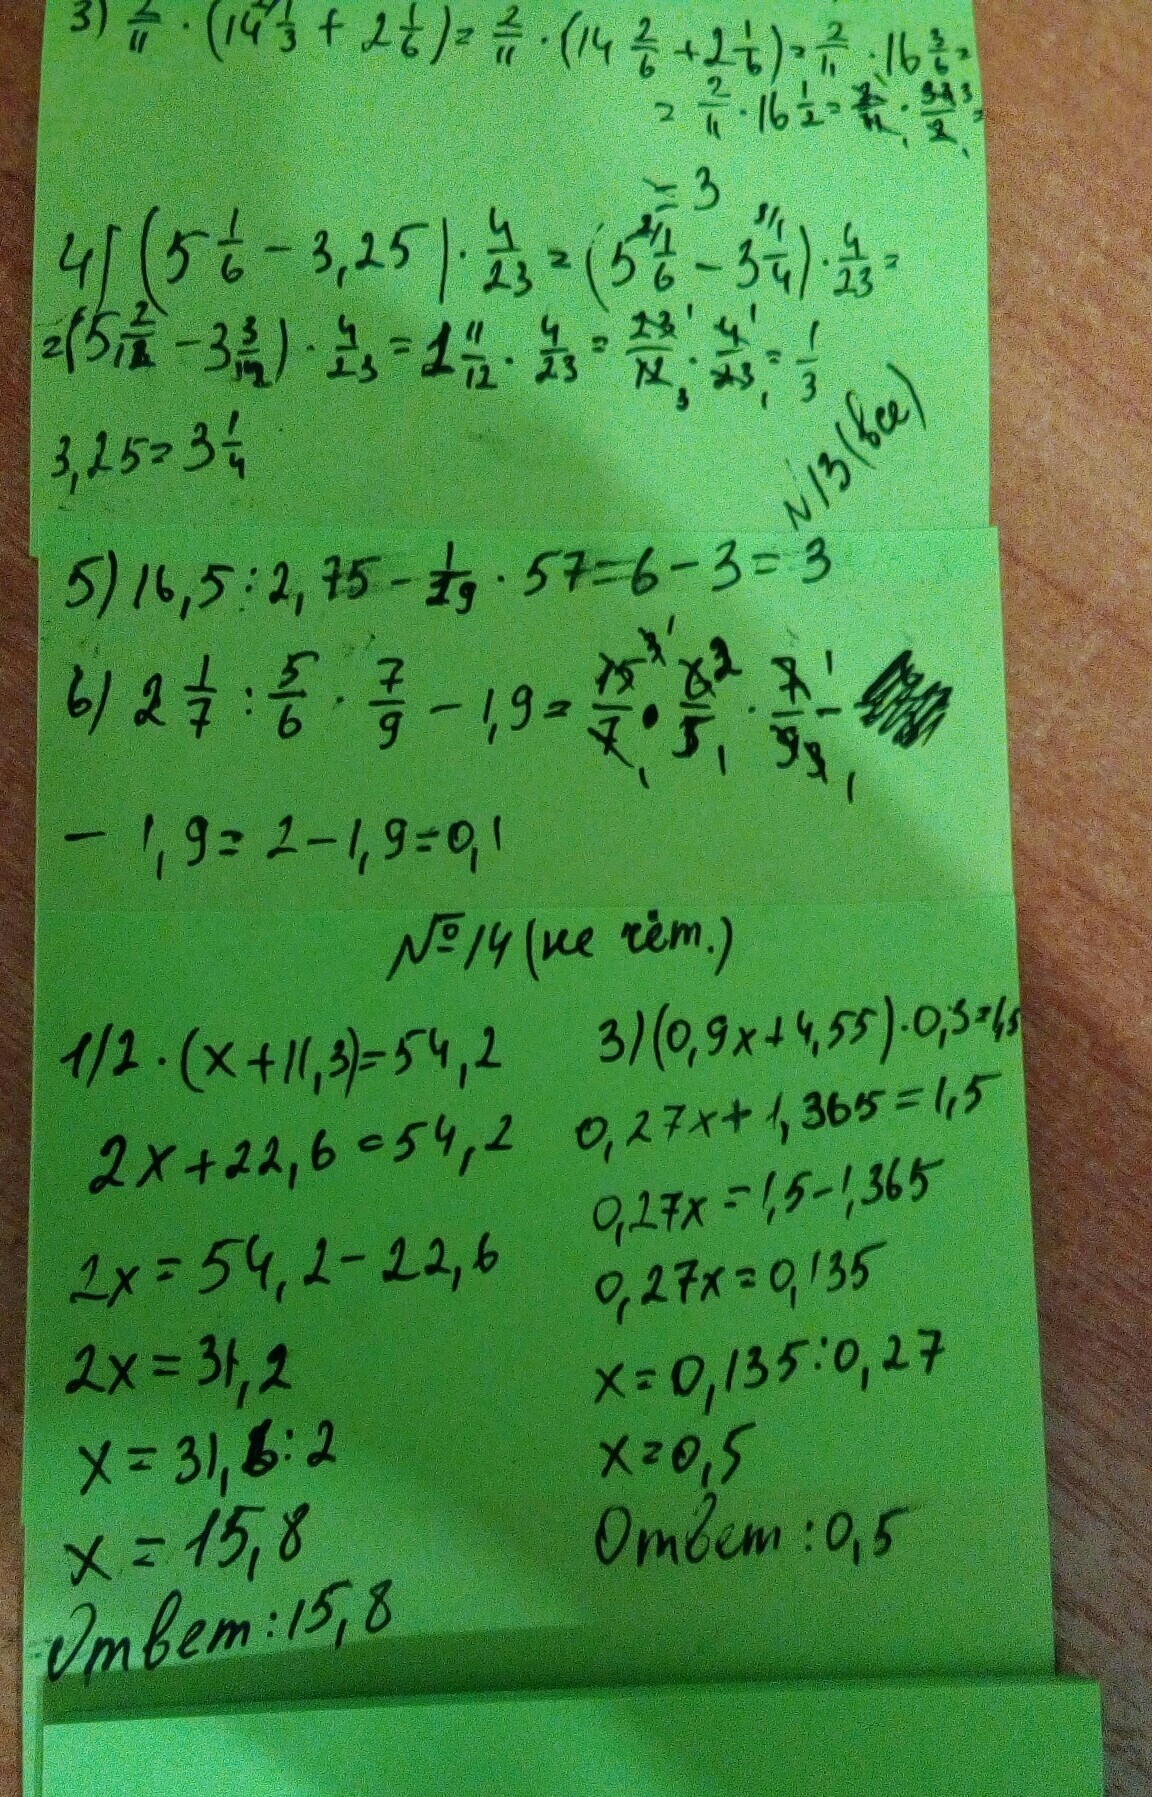 3) 2/11 · (14 1/3 + 2 1/6) = 2/11 · (14 2/6 + 2 1/6) = 2/11 · 16 3/6 =
= 2/11 · 16 1/2 = 2/11 · 33/2 =
= 3
4) (5 1/6 − 3,25) · 4/23 = (5 1/6 − 3 1/4) · 4/23 =
= (5 2/12 − 3 3/12) · 4/23 = 1 11/12 · 4/23 = 23/12 · 4/23 = 1/3
3,25 = 3 1/4
№13 (все)
5) 16,5 : 2,75 − 1/19 · 57 = 6 − 3 = 3
6) 2 1/7 : 5/6 · 7/9 − 1,9 = 15/7 · 6/5 · 7/9 −
− 1,9 = 2 − 1,9 = 0,1
№14 (не чёт.)
1) 2 · (x + 11,3) = 54,2
2x + 22,6 = 54,2
2x = 54,2 − 22,6
2x = 31,2
x = 31,6 : 2
x = 15,8
Ответ: 15,8
3) (0,9x + 4,55) · 0,3 = 1,5
0,27x + 1,365 = 1,5
0,27x = 1,5 − 1,365
0,27x = 0,135
x = 0,135 : 0,27
x = 0,5
Ответ: 0,5